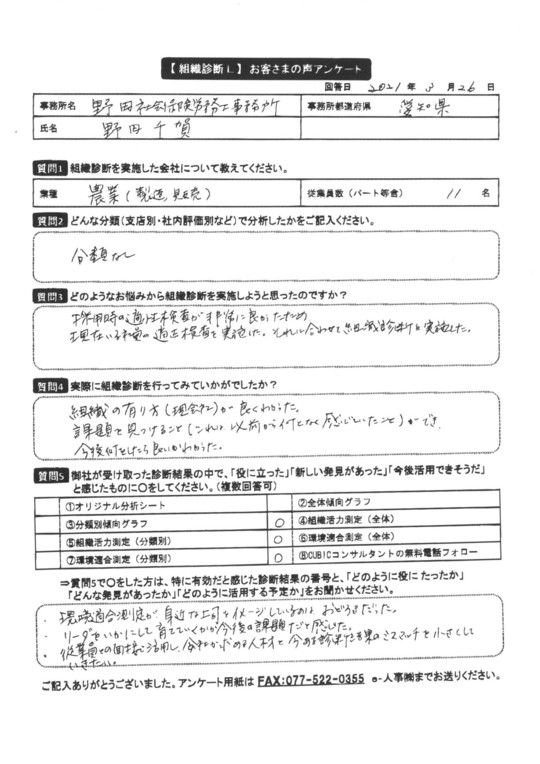 【組織診断L】お客さまの声アンケート
回答日 2021年 3月 26日
事務所名 野田社会保険労務士事務所 事務所都道府県 愛知県
氏名 野田千賀
質問1 組織診断を実施した会社について教えてください。
業種 農業(製造、販売) 従業員数(パート等含) 11 名
質問2 どんな分類(支店別・社内評価別など)で分析したかをご記入ください。
分類なし
質問3 どのようなお悩みから組織診断を実施しようと思ったのですか?
採用時の適性検査が非常に良かったため
現在いる社員の適正検査を実施した。それに合わせて組織診断も実施した。
質問4 実際に組織診断を行ってみていかがでしたか?
組織の有り方(現会社)が良くわかった。
課題を見つけること(これは以前から何となく感じていたこと)ができ、
今後何をしたら良いかわかった。
質問5 御社が受け取った診断結果の中で、「役に立った」「新しい発見があった」「今後活用できそうだ」
と感じたものに○をしてください。(複数回答可)
①オリジナル分析シート ②全体傾向グラフ
③分類別傾向グラフ ○ ④組織活力測定(全体)
⑤組織活力測定(分類別) ○ ⑥環境適合測定(全体)
⑦環境適合測定(分類別) ○ ⑧CUBICコンサルタントの無料電話フォロー
⇒質問5で○をした方は、特に有効だと感じた診断結果の番号と、「どのように役にたったか」
「どんな発見があったか」「どのように活用する予定か」をお聞かせください。
・環境適合測定が身近な上司をイメージしているのはおどろきだった。
・リーダーをいかにして育てていくかが今後の課題だと感じた。
・従業員との面接に活用し、会社が求める人材と今ある診断結果のミスマッチを小さくして
いきたい。
ご記入ありがとうございました。アンケート用紙は FAX:077-522-0355 e-人事㈱までお送りください。